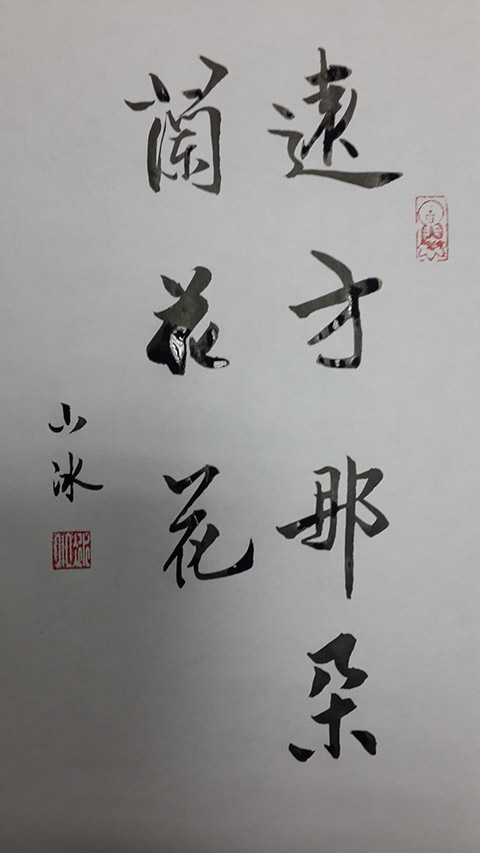 遠方那朵
蘭花花
小冰